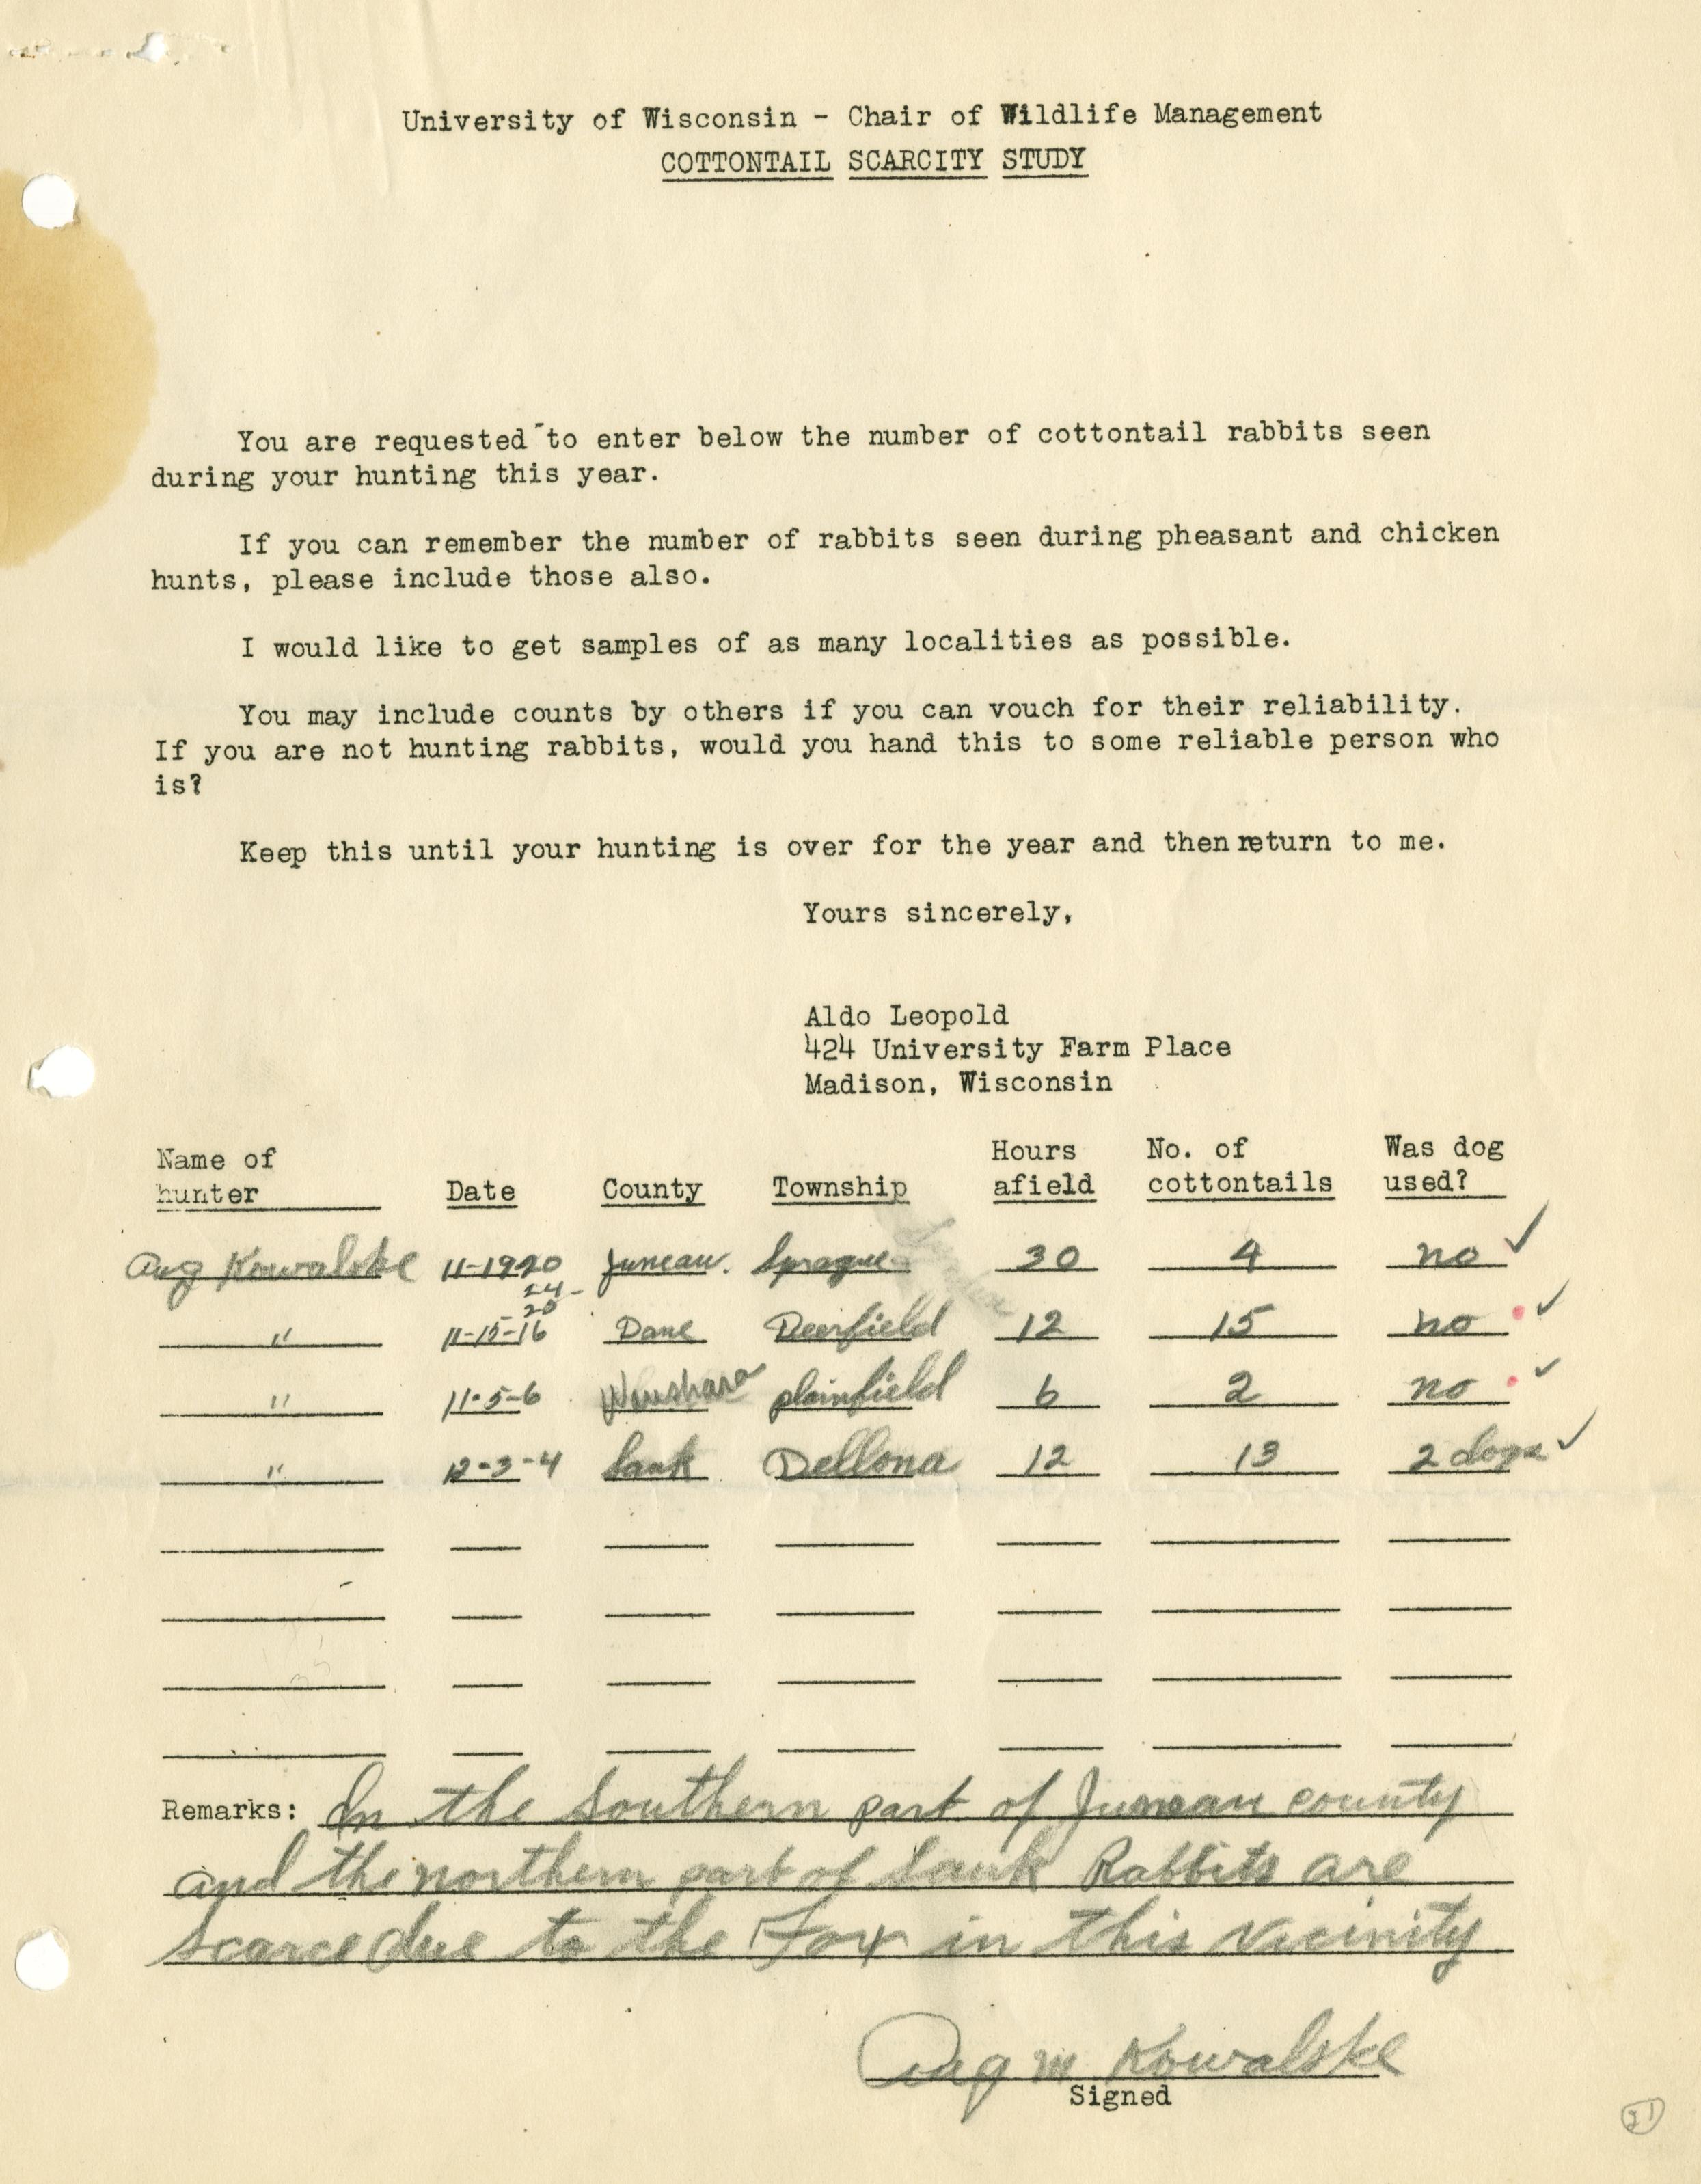 University of Wisconsin - Chair of Wildlife Management
COTTONTAIL SCARCITY STUDY
You are requested to enter below the number of cottontail rabbits seen
during your hunting this year.
If you can remember the number of rabbits seen during pheasant and chicken
hunts, please include those also.
I would like to get samples of as many localities as possible.
You may include counts by others if you can vouch for their reliability.
If you are not hunting rabbits, would you hand this to some reliable person who
is?
Keep this until your hunting is over for the year and then return to me.
Yours sincerely,
Aldo Leopold
424 University Farm Place
Madison, Wisconsin
Name of hunter Date County Township Hours afield No. of cottontails Was dog used?
Aug Kowalske 11-1920 Juneau. Sprague 30 4 no ✓
24-
" 11-15-16 Dane Deerfield 12 15 no ✓
" 11-5-6 Waushara plainfield 6 2 no ✓
" 12-3-4 Sauk Dellona 12 13 2 dogs ✓
Remarks: In the Southern part of Juneau county
and the northern part of Sauk Rabbits are
Scarce due to the Fox in this vicinity
Aug M Kowalske
Signed